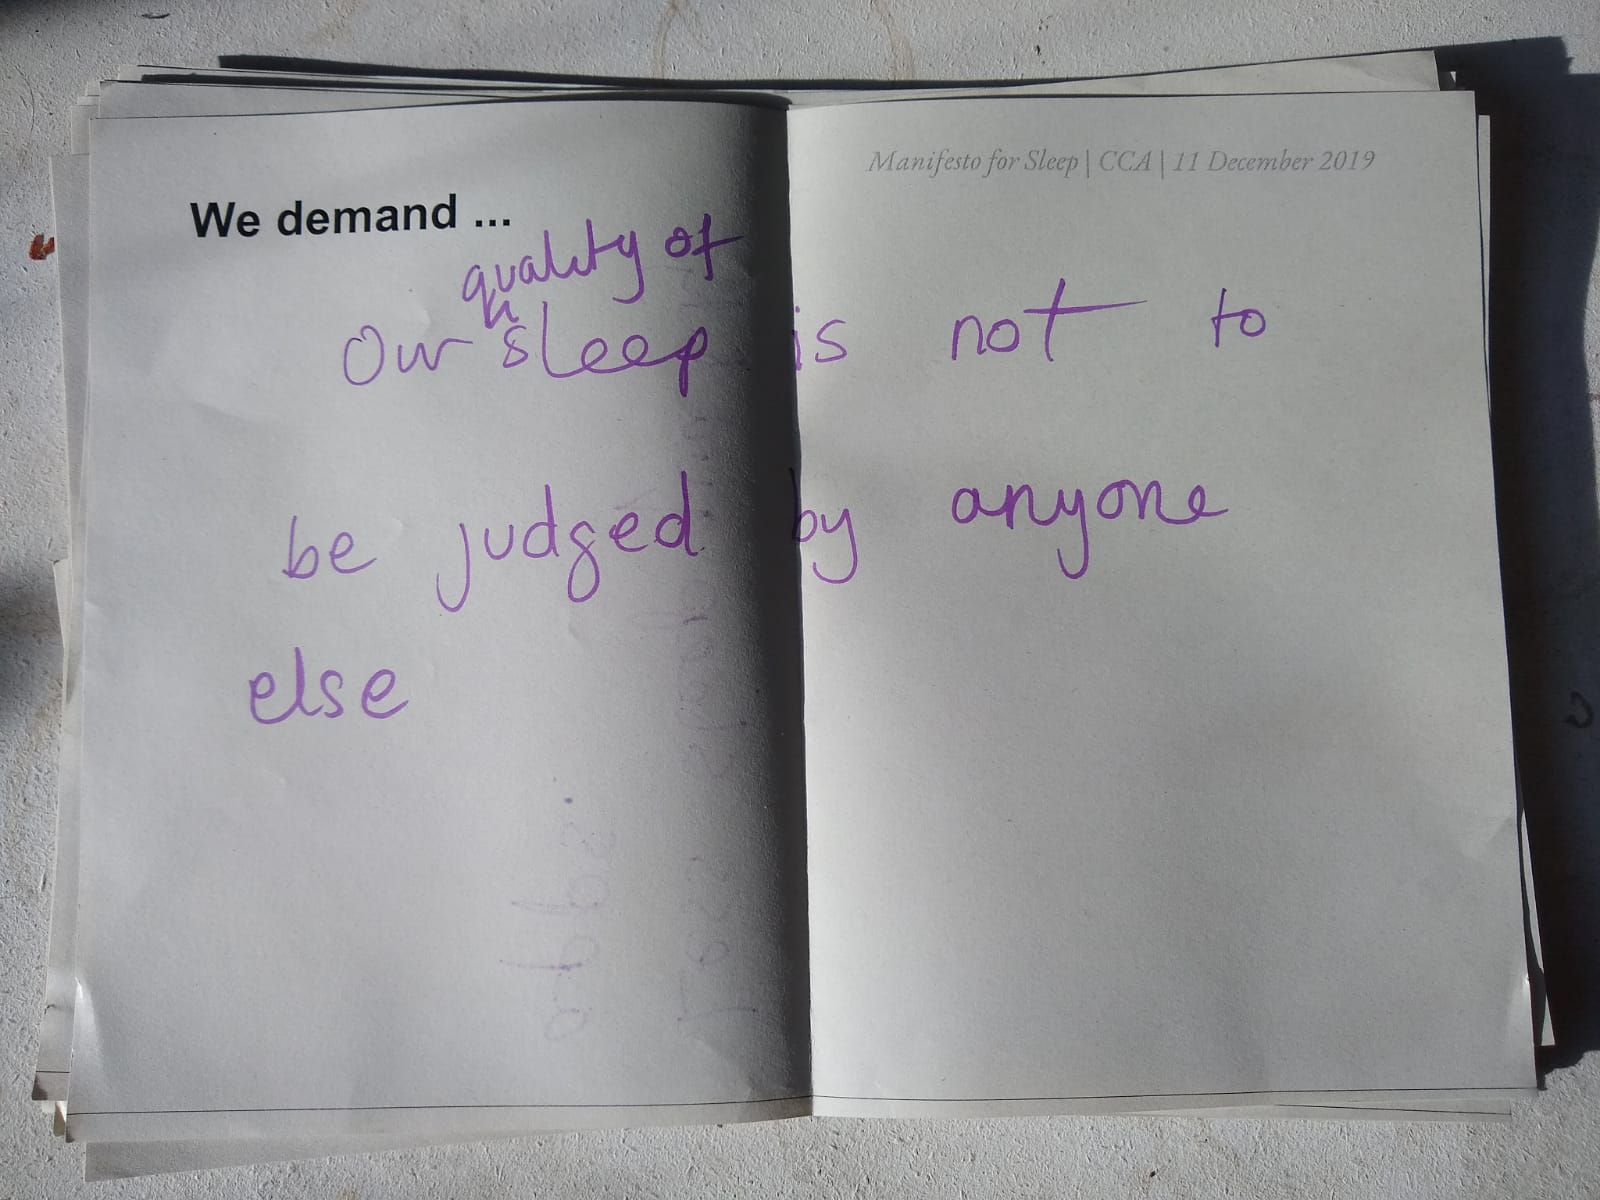 Manifesto for Sleep | CCA | 11 December 2019
We demand ...
quality of
Our sleep is not to
be judged by anyone
else